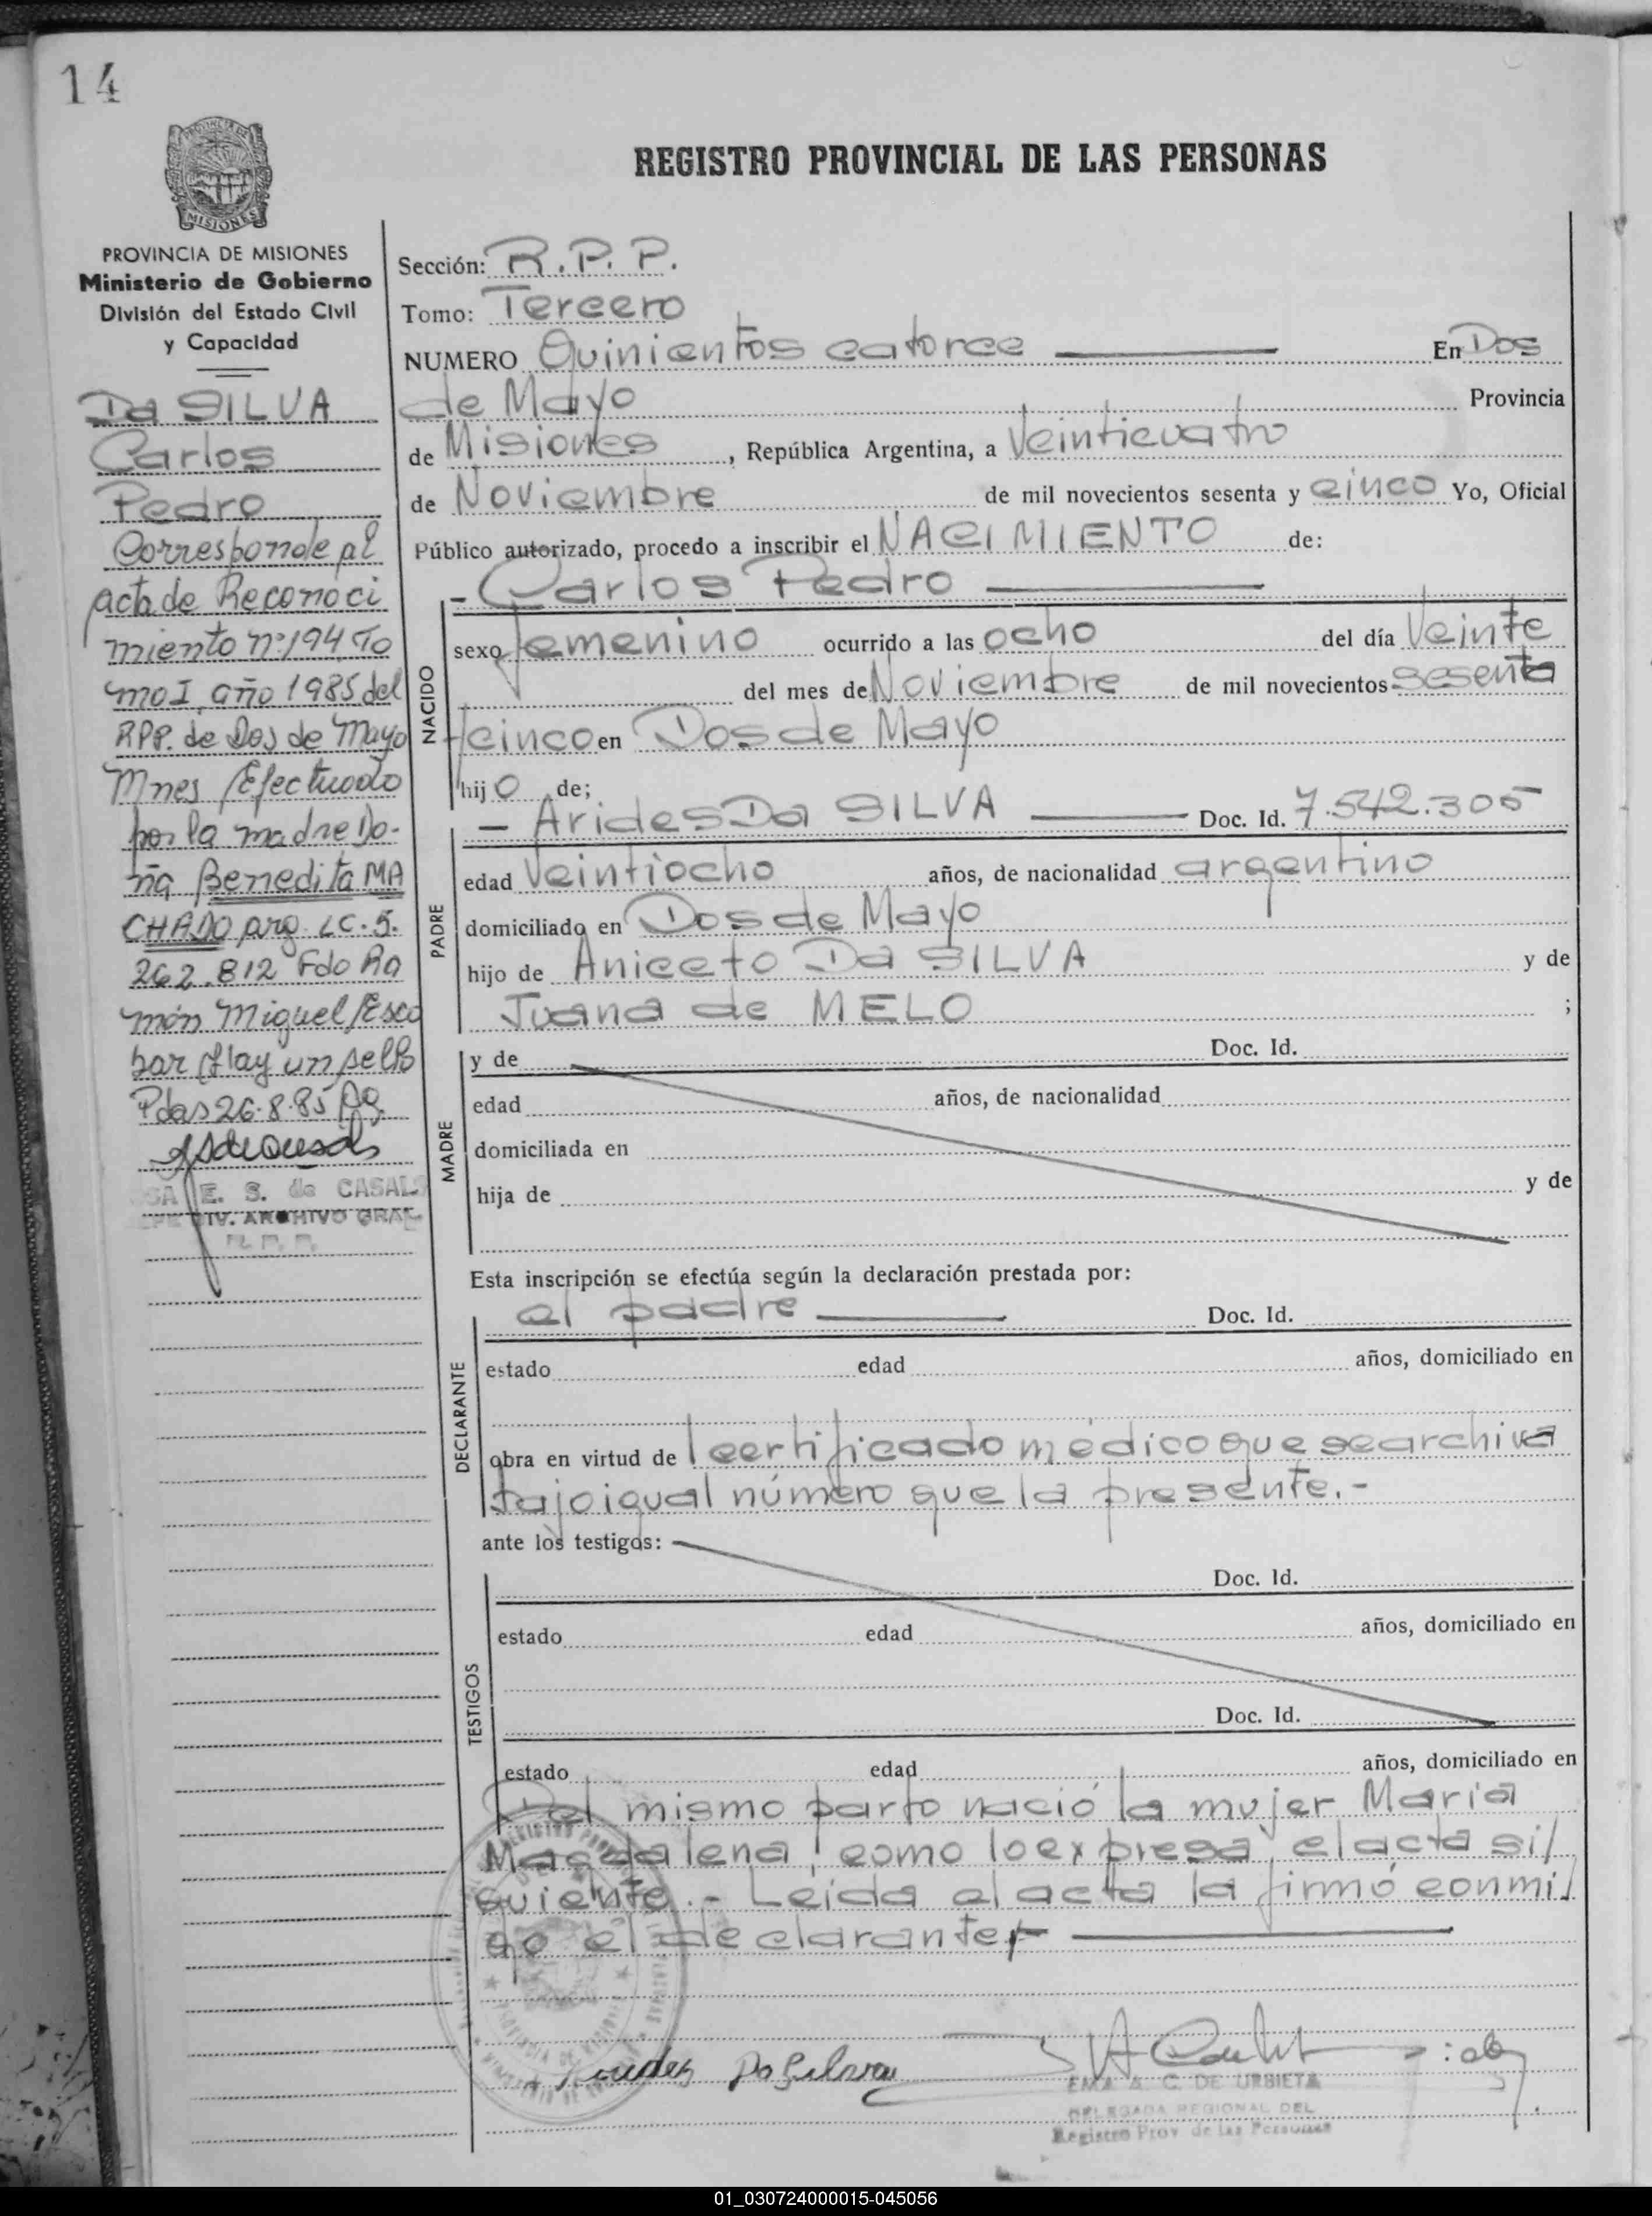 14
REGISTRO PROVINCIAL DE LAS PERSONAS
MISIONES
PROVINCIA DE MISIONES
Ministerio de Gobierno
División del Estado Civil
y Capacidad
Da SILVA
Carlos
Pedro
Corresponde al
acta de Reconoci
miento nº 194 To
mo I, año 1985 del
RPP. de Dos de Mayo
Mnes Efectuado
por la madre Do-
ña Benedita MA
CHADO arg. LC. 5.
262.812 Fdo Ra
món Miguel Esco
bar Hay un sello
Pdas 26.8.85
E. S. de CASAL
DIV. ARCHIVO GRAL
R. P. P.
Sección: R.P.P.
Tomo: Tercero
NUMERO Quinientos catorce En Dos
de Mayo Provincia
de Misiones, República Argentina, a Veinticuatro
de Noviembre de mil novecientos sesenta y cinco Yo, Oficial
Público autorizado, procedo a inscribir el NACIMIENTO de:
- Carlos Pedro
NACIDO
sexo femenino ocurrido a las ocho del día Veinte
del mes de Noviembre de mil novecientos sesenta
y cinco en Dos de Mayo
hijo de;
PADRE
- Arides Da SILVA Doc. Id. 7.542.305
edad Veintiocho años, de nacionalidad argentino
domiciliado en Dos de Mayo
hijo de Aniceto Da SILVA y de
Juana de MELO ;
MADRE
y de Doc. Id.
edad años, de nacionalidad
domiciliada en
hija de y de
Esta inscripción se efectúa según la declaración prestada por:
DECLARANTE
el padre Doc. Id.
estado edad años, domiciliado en
obra en virtud de l certificado médico que se archiva
bajo igual número que la presente.-
ante los testigos:
TESTIGOS
Doc. Id.
estado edad años, domiciliado en
Doc. Id.
estado edad años, domiciliado en
Del mismo parto nació la mujer María
Magdalena, como lo expresa el acta si/
guiente.- Leída el acta la firmó conmi/
go el declarante
Da Silva
EMA A. C. DE URBIETA
DELEGADA REGIONAL DEL
Registro Prov de las Personas
01_030724000015-045056